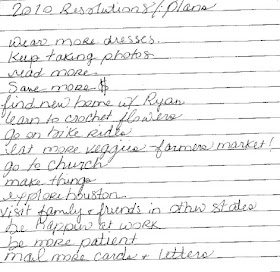 2010 Resolutions/Plans
wear more dresses
Keep taking photos
read more
Save more $
find new home w/ Ryan
learn to crochet flowers
go on bike rides
eat more veggies - farmers market!
go to church
make things
explore houston
visit family + friends in other states
be happier at work
be more patient
mail more cards + letters